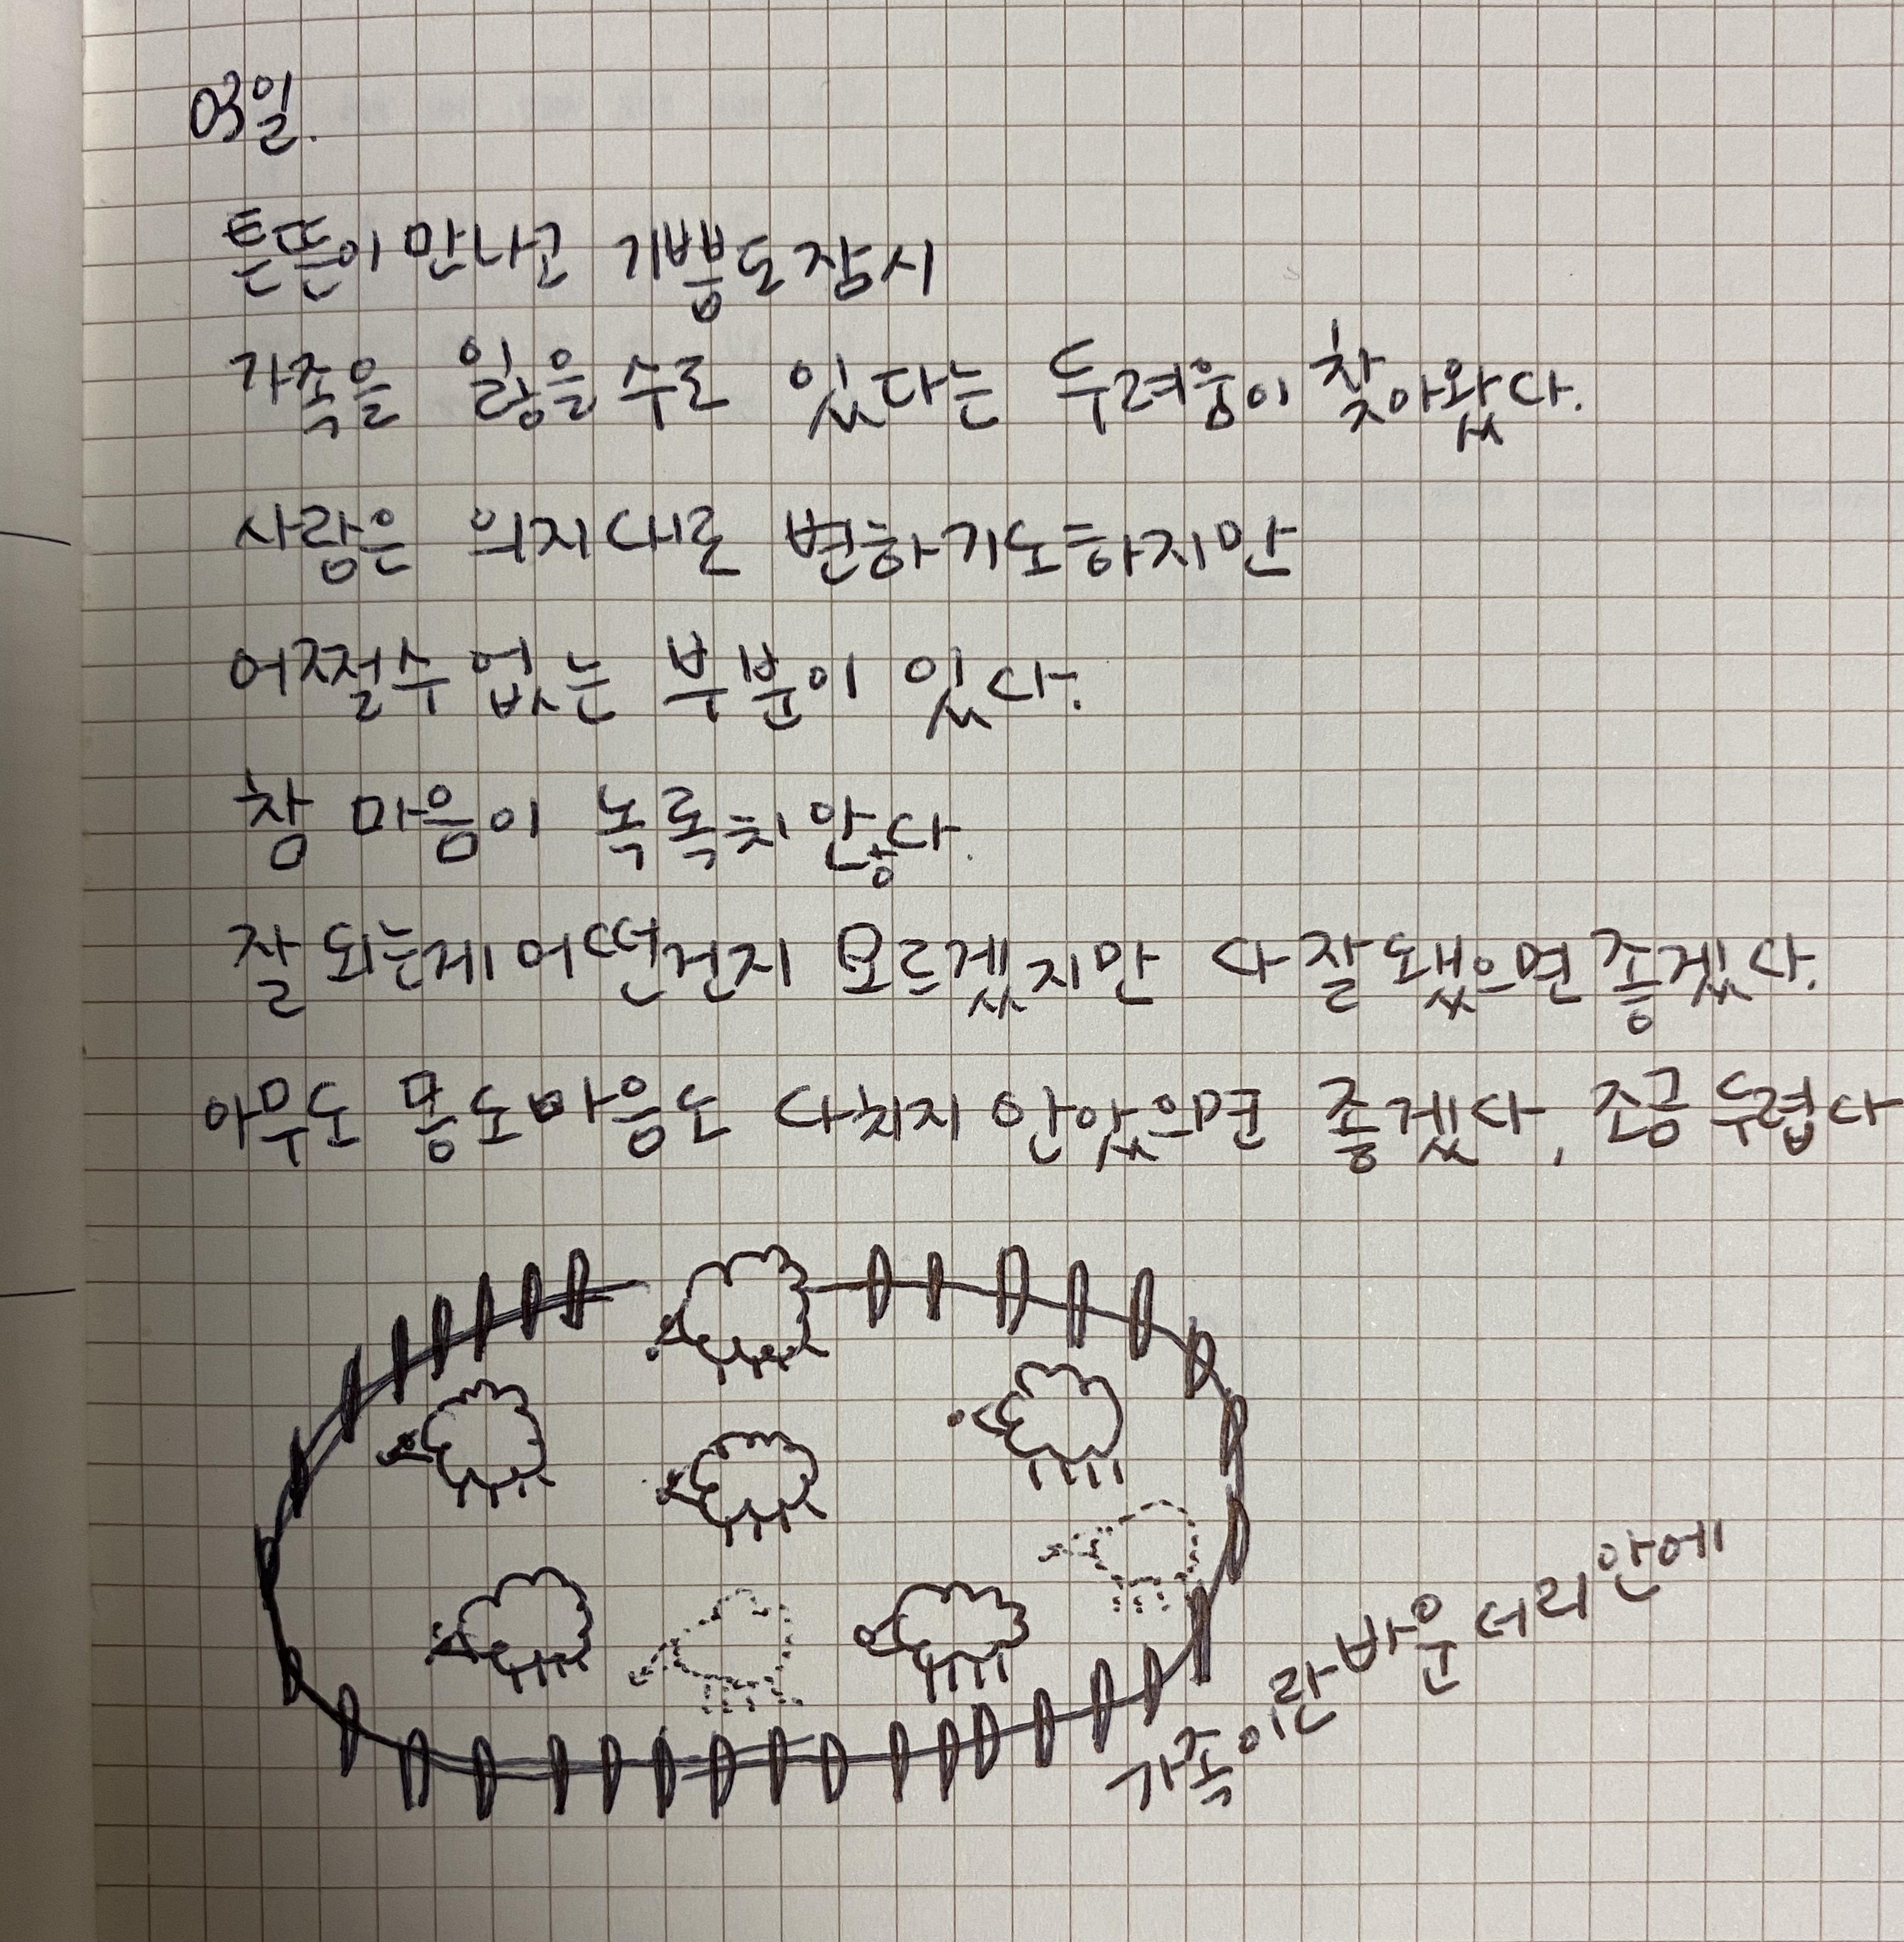 03일.
튼뜬이 만나고 기쁨도 잠시
가족을 잃을 수도 있다는 두려움이 찾아왔다.
사람은 의지대로 변하기도하지만
어쩔수 없는 부분이 있다.
참 마음이 녹록치 않다.
잘 되는게 어떤건지 모르겠지만 다 잘 됐으면 좋겠다.
아무도 몸도 마음도 다치지 안았으면 좋겠다, 조금 두렵다
가족이란 바운더리 안에